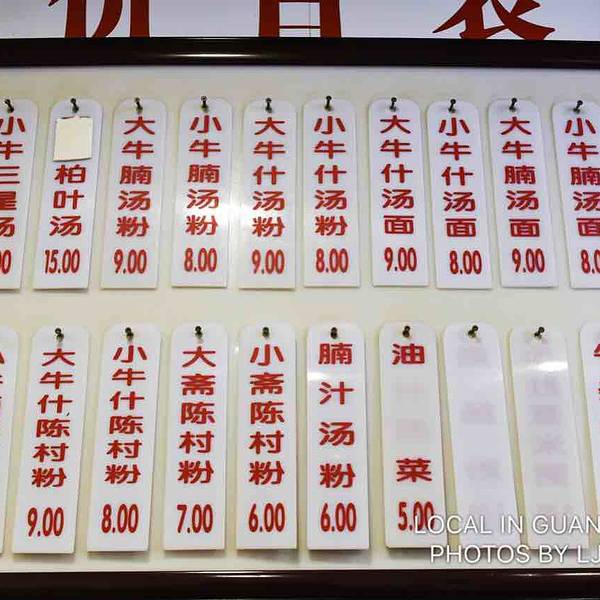 价目表
小牛三星汤
柏叶汤 15.00
大牛腩汤粉 9.00
小牛腩汤粉 8.00
大牛什汤粉 9.00
小牛什汤粉 8.00
大牛什汤面 9.00
小牛什汤面 8.00
大牛腩汤面 9.00
小牛腩汤面
大牛什陈村粉 9.00
小牛什陈村粉 8.00
大斋陈村粉 7.00
小斋陈村粉 6.00
腩汁汤粉 6.00
油菜 5.00
LOCAL IN GUAN
PHOTOS BY LJ